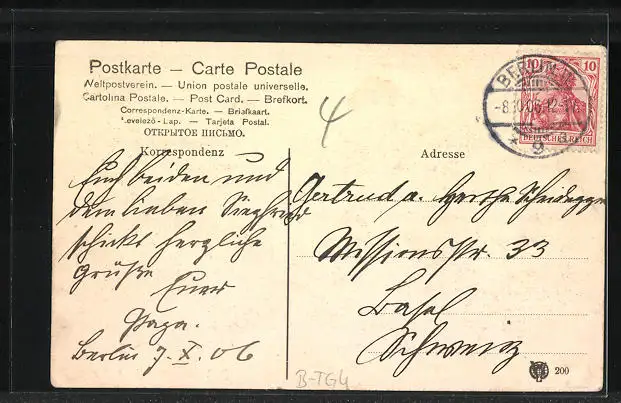 Postkarte — Carte Postale
Weltpostverein. — Union postale universelle.
Cartolina Postale. — Post Card. — Brefkort.
Correspondenz-Karte. — Briefkaart.
Levelező-Lap. — Tarjeta Postal.
ОТКРЫТОЕ ПИСЬМО.
Korrespondenz
Euch beiden und
dem lieben Siegfried
schickt herzliche
Grüße
Euer
Papa.
Berlin 7. X. 06
4
B-TG4
10 10
DEUTSCHES REICH
BERLIN
-8.10.06.12-
* 9
Adresse
Gertrud u. Hertha Scheidegger
Missionsstr. 33
Basel
Schweiz
200